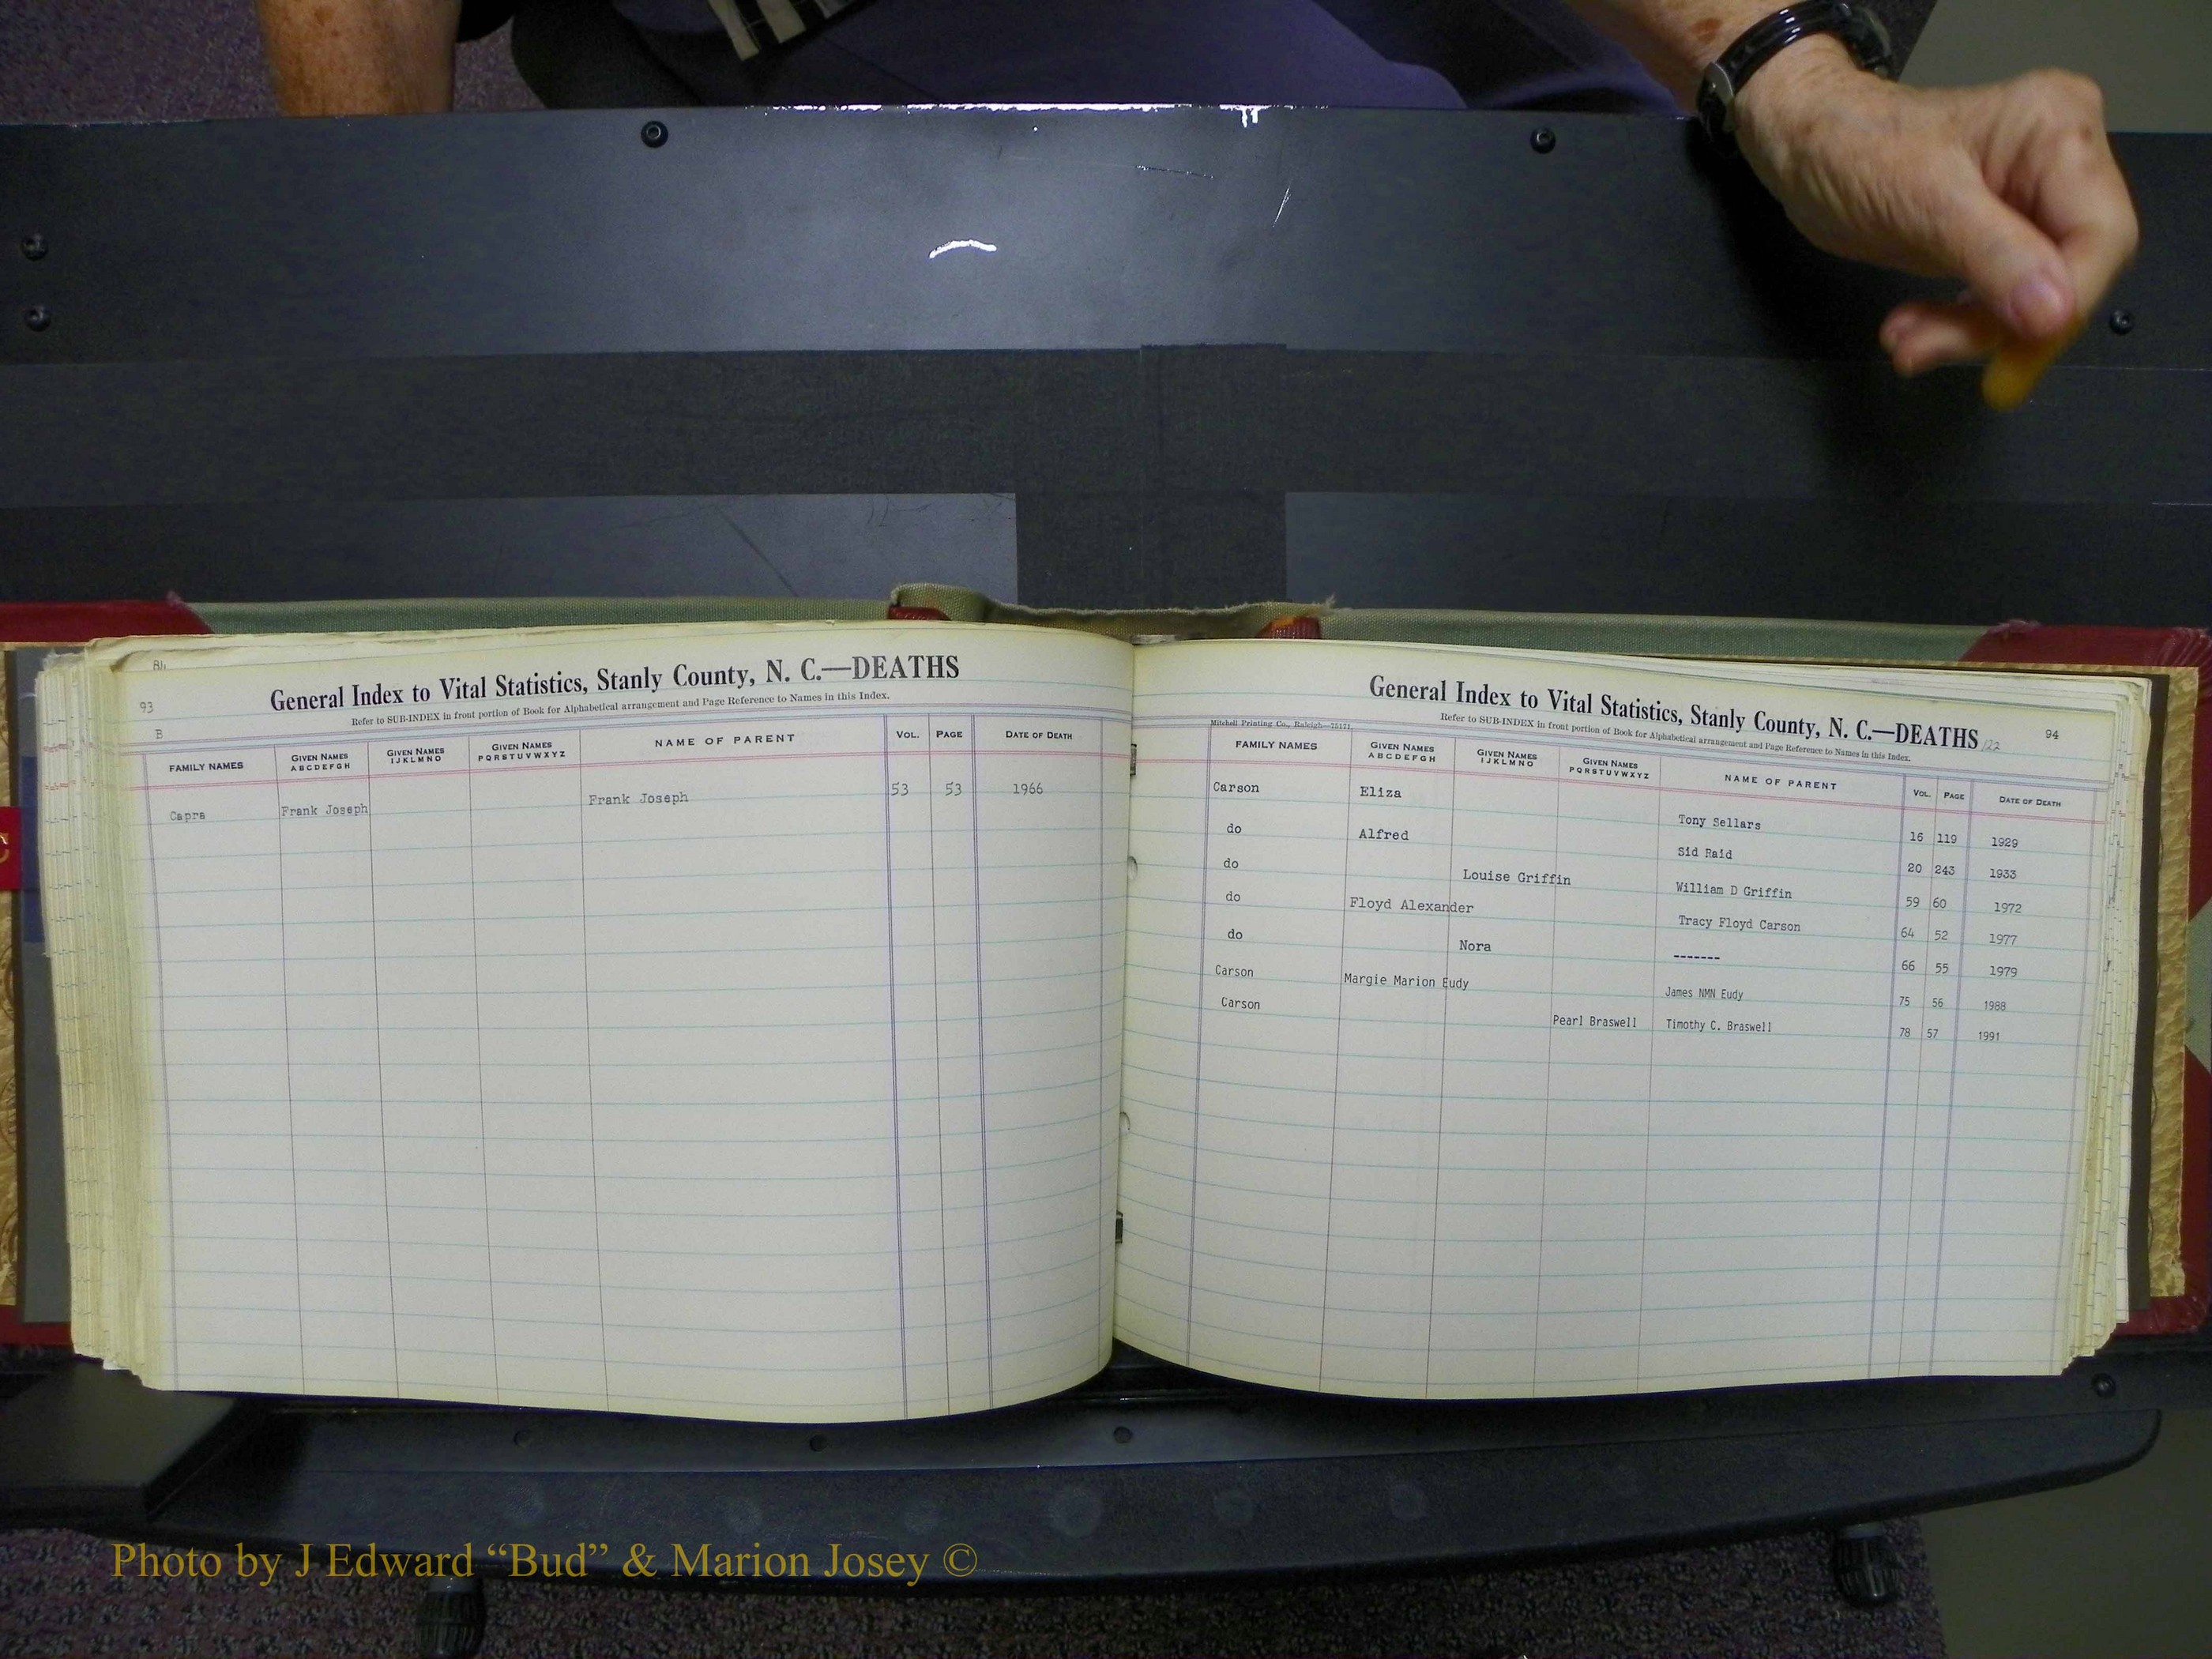 93
B
General Index to Vital Statistics, Stanly County, N. C.—DEATHS
Refer to SUB-INDEX in front portion of Book for Alphabetical arrangement and Page Reference to Names in this Index.
FAMILY NAMES GIVEN NAMES ABCDEFGH GIVEN NAMES IJKLMNO GIVEN NAMES PQRSTUVWXYZ NAME OF PARENT VOL. PAGE DATE OF DEATH
Capra Frank Joseph Frank Joseph 53 53 1966
General Index to Vital Statistics, Stanly County, N. C.—DEATHS 122 94
Refer to SUB-INDEX in front portion of Book for Alphabetical arrangement and Page Reference to Names in this Index.
Mitchell Printing Co., Raleigh—75171
FAMILY NAMES GIVEN NAMES ABCDEFGH GIVEN NAMES IJKLMNO GIVEN NAMES PQRSTUVWXYZ NAME OF PARENT VOL. PAGE DATE OF DEATH
Carson Eliza Tony Sellars 16 119 1929
do Alfred Sid Raid 20 243 1933
do Louise Griffin William D Griffin 59 60 1972
do Floyd Alexander Tracy Floyd Carson 64 52 1977
do Nora ------- 66 55 1979
Carson Margie Marion Eudy James NMN Eudy 75 56 1988
Carson Pearl Braswell Timothy C. Braswell 78 57 1991
Photo by J Edward “Bud” & Marion Josey ©